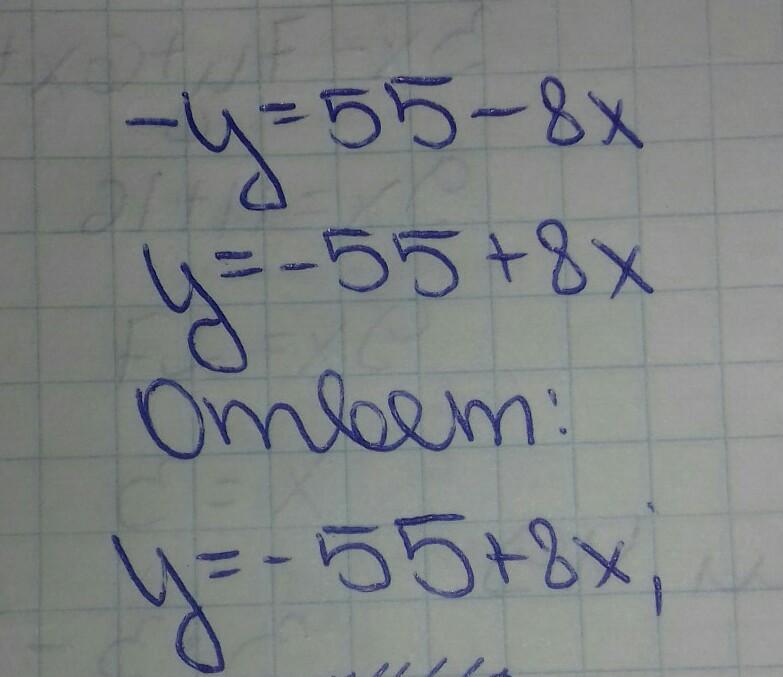 -y=55-8x
y=-55+8x
Ответ:
y=-55+8x;